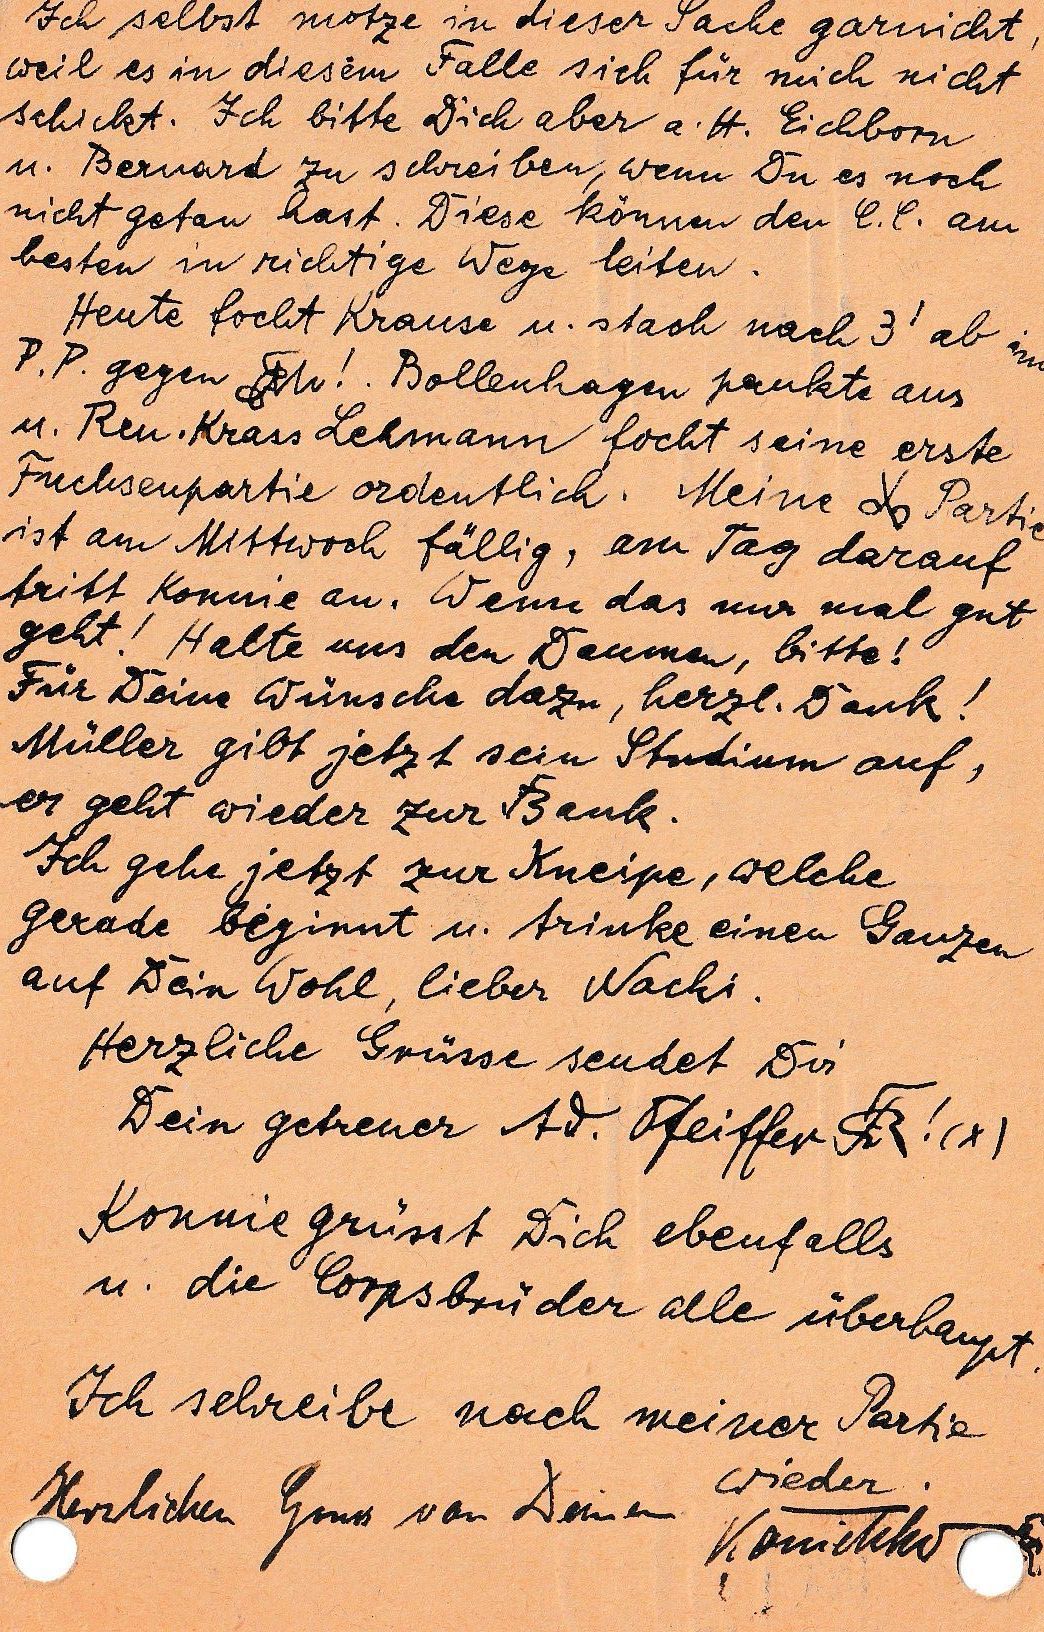 Ich selbst motze in dieser Sache garnicht,
weil es in diesem Falle sich für mich nicht
schickt. Ich bitte Dich aber a. H. Eichborn
u. Bernard zu schreiben, wenn Du es noch
nicht getan hast. Diese können den C.C. am
besten in richtige Wege leiten.
Heute focht Krause u. stach nach 3' ab im
P.P. gegen ! . Bollenhagen paukte aus
u. Ren. Krass Lehmann focht seine erste
Fuchsenpartie ordentlich. Meine Partie
ist am Mittwoch fällig, am Tag darauf
tritt Konnie an. Wenn das nur mal gut
geht! Halte uns den Daumen, bitte!
Für Deine Wünsche dazu, herzl. Dank!
Müller gibt jetzt sein Studium auf,
er geht wieder zur Bank.
Ich gehe jetzt zur Kneipe, welche
gerade beginnt u. trinke einen Ganzen
auf Dein Wohl, lieber Nacki.
Herzliche Grüsse sendet Dir
Dein getreuer Ad. Pfeiffer ! (x)
Konnie grüsst Dich ebenfalls
u. die Corpsbrüder alle überhaupt.
Ich schreibe nach meiner Partie
wieder.
Herzlichen Gruss von Deinem